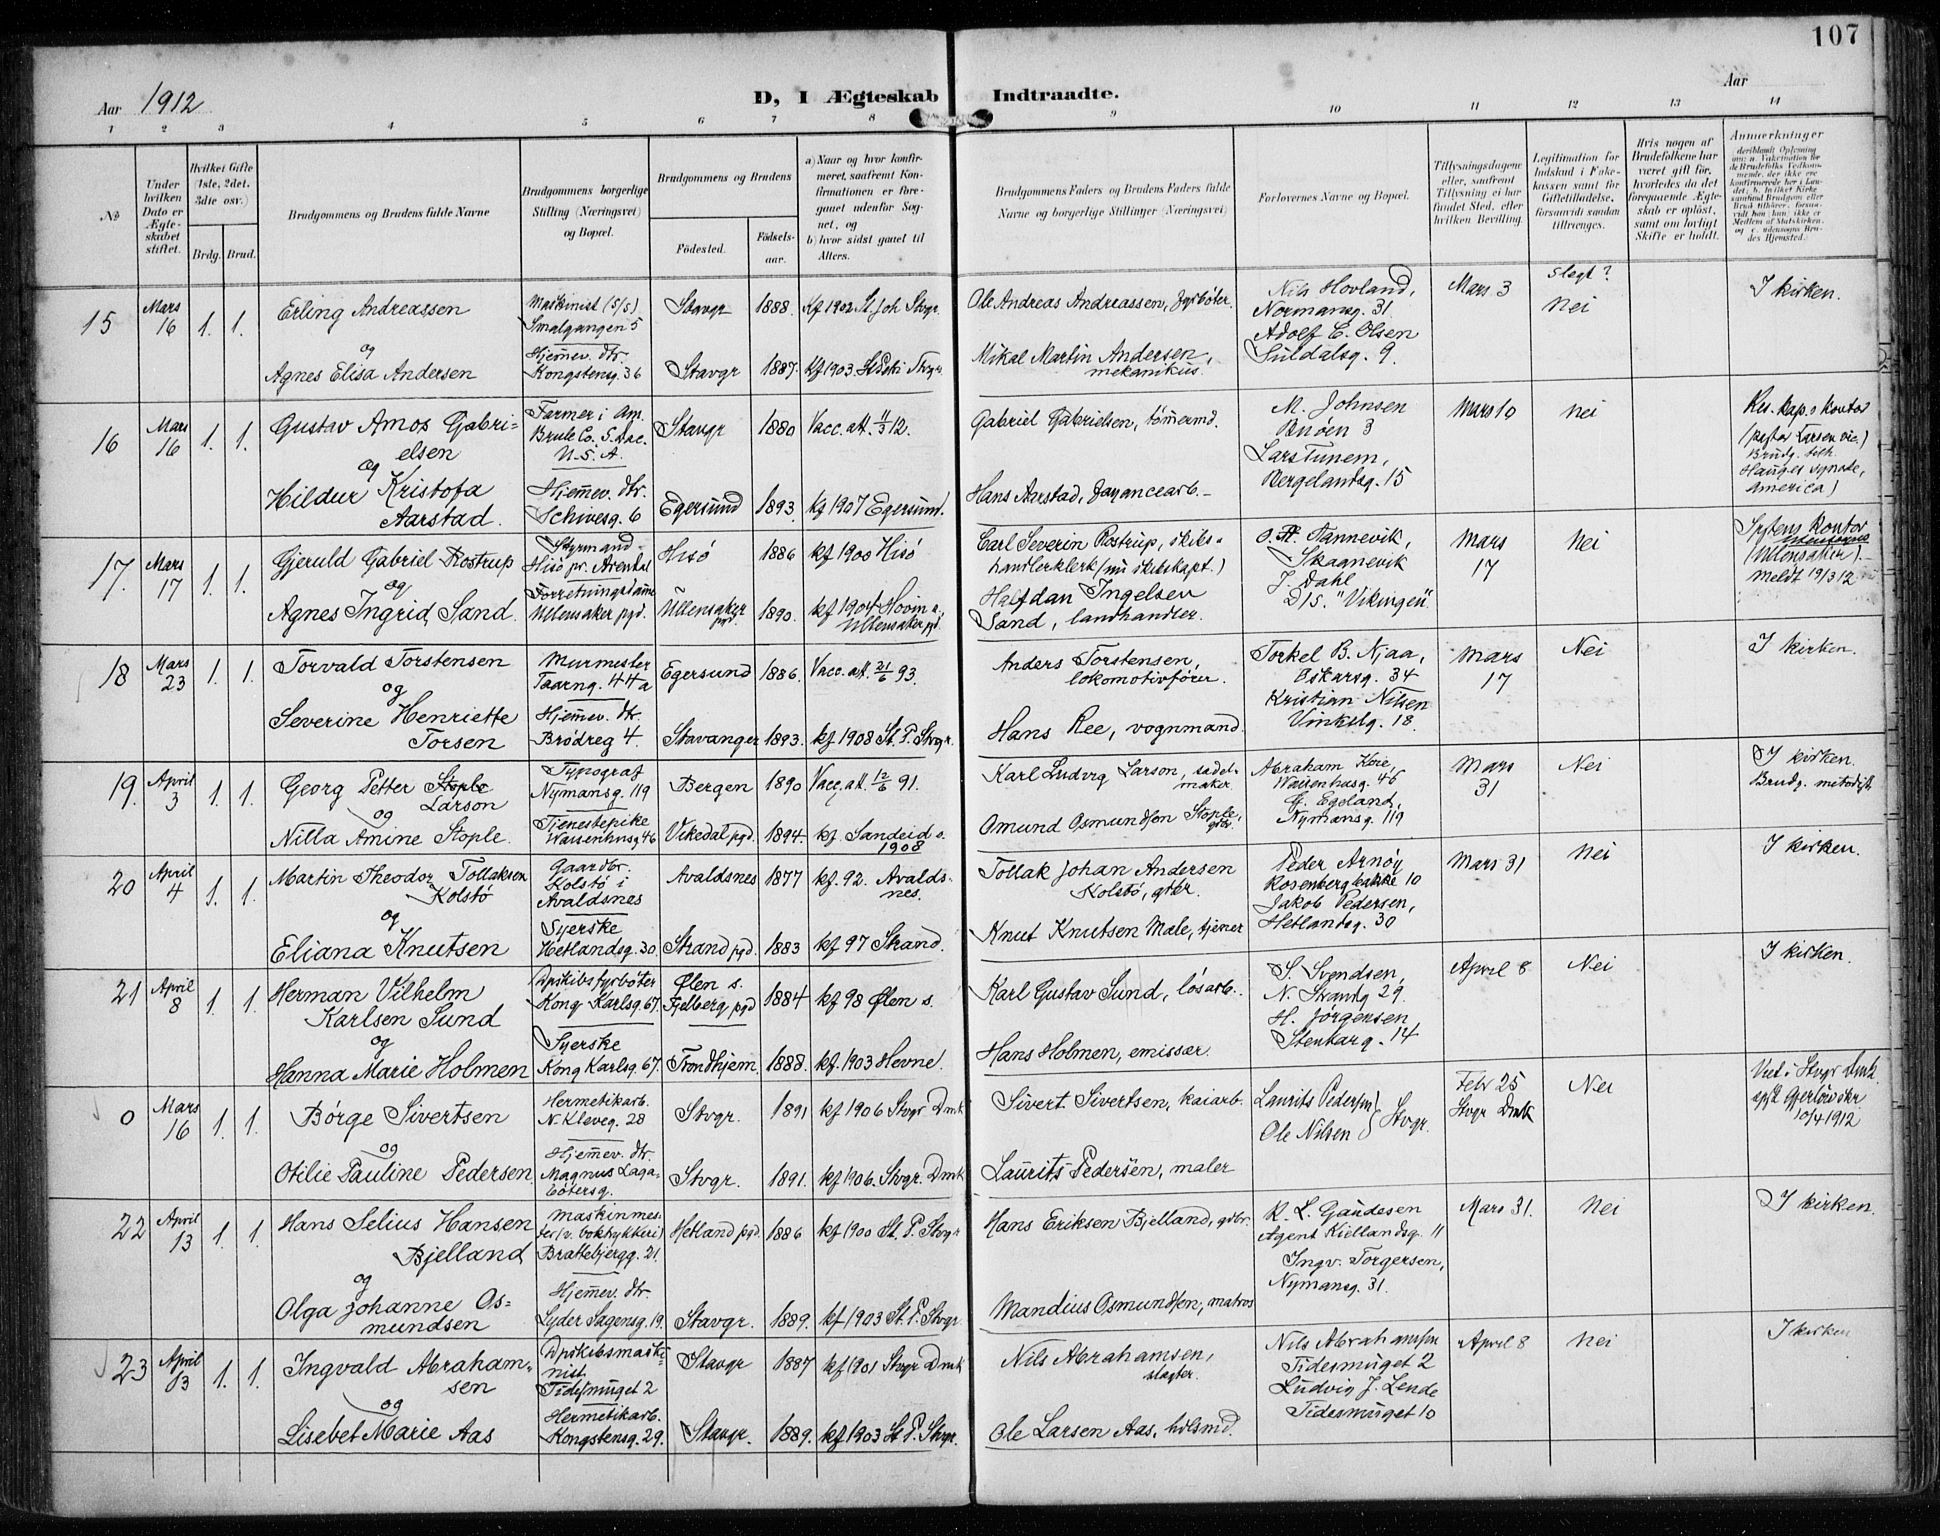 107
Aar 1912
D, I Ægteskab Indtraadte.
Aar
1 2 3 4 5 6 7 8 9 10 11 12 13 14
No
Under hvilken Dato er Ægteskabet stiftet.
Hvilket Gifte (1ste, 2det, 3die osv.)
Brdg. Brud.
Brudgommens og Brudens fulde Navne
Brudgommens borgerlige Stilling (Næringsvei) og Bopæl.
Brudgommens og Brudens
Fødested.
Fødselsaar.
a) Naar og hvor konfirmeret, saafremt Konfirmationen er foregaaet udenfor Sognet, og
b) hvor sidst gaaet til Alters.
Brudgommens Faders og Brudens Faders fulde Navne og borgerlige Stillinger (Næringsvei)
Forlovernes Navne og Bopæl.
Tillysningsdagene eller, saafremt Tillysning ei har fundet Sted, efter hvilken Bevilling.
Legitimation for Indskud i Enkekassen samt for Giftetilladelse, forsaavidt saadan tiltrænges.
Hvis nogen af Brudefolkene har været gift før, hvorledes da det foregaaende Ægteskab er opløst, samt om lovligt Skifte er holdt.
Anmerkninger
15
Mars 16
1. 1.
Erling Andreassen
og
Agnes Elisa Andersen
Maskinist (S/S)
Smalgangen 5
Hjemmev. dtr.
Kongstensg. 36
Stavgr 1888 Kf 1902 St. Joh Stvgr.
Stavgr 1887. Kf 1903. St. Petri Stvgr
Ole Andreas Andreassen, fyrbøter.
Mikal Martin Andersen, mekanikus.
Nils Hovland,
Normansg. 31
Adolf E. Olsen
Suldalsg. 9.
Mars 3
Slegt?
Nei
I kirken.
16
Mars 16
1. 1.
Gustav Amos Gabrielsen
og
Hildur Kristofa Aarstad.
Farmer i Am.
Brule Co. S. Dac.
U.S.A.
Hjemmev. dtr.
Schivesg. 6
Stavgr 1880 Vacc. att. 11/3 12.
Egersund 1893. kf 1907 Egersund.
Gabriel Gabrielsen, tømermd.
Hans Aarstad, fayancearb.
M. Johnsen
Buøen 3
Lars Tunem,
Bergelandsg. 15
Mars 10
Nei
Res. kap.s kontor
(pastor Larsen vic.)
Brudg. tilh.
Hauges synode,
America)
17.
Mars 17
1. 1.
Gjeruld Gabriel Rostrup
og
Agnes Ingrid Sand.
Styrmand
Hisø pr. Arendal
Ullensaker pgd.
Hisø 1886 kf 1900 Hisø
Ullensaker pgd. 1890. kf 1904 Hovin s. Ullensaker pgd.
Carl Severin Rostrup, skibshandlerklerk (nu skibskapt.)
Halfdan Ingelsen Sand, landhandler.
Tannevik,
Skaanevik
J. Dahl
D/S. "Vikingen"
Mars 17
Nei
kontor
(Ullensaker).
meldt 19/3 12
18
Mars 23
1. 1.
Torvald Torstensen
og
Severine Henriette Torsen
Murmester
Taarng. 44a
Hjemmev. dtr.
Brødreg 4.
Egersund 1886. Vacc. att. 21/6 93.
Stavanger 1893. kf 1908 St. P. Stvgr.
Anders Torstensen, lokomotivfører.
Hans Ree, vognmand.
Torkel B. Njaa,
Oskarsg. 34
Kristian Nilsen
Vinkelg. 18.
Mars 17
Nei
I kirken.
19.
April 3
1. 1.
Georg Petter Stople Larson
og
Nilla Amine Stople.
Typograf
Nymansg. 119
Tjenestepike
Waisenhusg 46
Bergen 1890 Vacc. att. 12/6 91.
Vikedal pgd. 1894. kf. Sandeid s. 1908
Karl Ludvig Larson, sadelmaker.
Omund Osmundsen Stople, gdbr.
Abraham
Waisenhusg. 46
Egeland,
Nymansg. 119
Mars 31
Nei
I kirken.
Brudg. metodist
20
April 4
1. 1.
Martin Theodor Tollaksen Kolstø
og
Eliana Knutsen
Gaardbr.
Kolstø i
Avaldsnes
Syerske
Hetlandsg. 30
Avaldsnes 1877 kf. 92. Avaldsnes.
Strand pgd. 1883 kf 97 Strand.
Tollak Johan Andersen Kolstø, gdbr.
Knut Knutsen Male, tjener
Peder Arnøy
Rosenbergbakke 10
Jakob Pedersen,
Hetlandsg. 30
Mars 31
Nei
I kirken.
21
April 8
1. 1.
Herman Vilhelm Karlsen Sund
og
Hanna Marie Holmen
Dpskibsfyrbøter
Kong Karlsg. 67.
Syerske
Kong Karlsg. 67.
Ølen s. Fjelberg pgd 1884 kf 98 Ølen s.
Trondhjem. 1888. kf. 1903 Hevne.
Karl Gustav Sund, løsarb.
Hans Holmen, emissær.
S. Svendsen,
N. Strandg 29.
H. Jørgensen,
Stenkarg. 14
April 8
Nei
I kirken.
0
Mars 16
1. 1.
Børge Sivertsen
og
Otilie Pauline Pedersen
Hermetikarb.
N. Kleveg. 28
Hjemmev. dtr.
Magnus Lagabøtersg.
Stvgr. 1891 kf 1906 Stvgr Dmk
Stvgr. 1891. kf 1906. Stvgr. Dmk
Sivert Sivertsen, kaiarb.
Laurits Pedersen, maler
Laurits Pedersen
Ole Nilsen } Stvgr.
Febr 25
Stvgr Dmk
Nei
Viet i Stvgr Dmk
10/4 1912
22
April 13
1. 1.
Hans Selius Hansen Bjelland
og
Olga Johanne Osmundsen
Maskinmester (v. boktrykkeri)
Brattebjergg. 21.
Hjemmev. dtr.
Lyder Sagensg. 19.
Hetland pgd. 1886 kf 1900 St. P. Stvgr
Stavgr. 1889. kf 1903 St. P. Stvgr.
Hans Eriksen Bjelland, gdbr.
Mandius Osmundsen, matros
K. L. Gaudesen
Agent Kiellandsg. 11
Ingv. Torgersen,
Nymansg. 31.
Mars 31.
Nei
I kirken.
23
April 13
1. 1.
Ingvald Abrahamsen
og
Lisebet Marie Aas
Dpskibsmaskinist
Tidesmuget 2
Hermetikarb.
Kongstensg. 29.
Stavgr 1887 kf 1901 Stvgr Dmk
Stavgr. 1889. kf 1903 St. P. Stvgr.
Nils Abrahamsen, slagter.
Ole Larsen Aas, hvlsmd.
Nils Abrahamsen
Tidesmuget 2
Ludvig J. Lende
Tidesmuget 10
April 8
Nei
I kirken